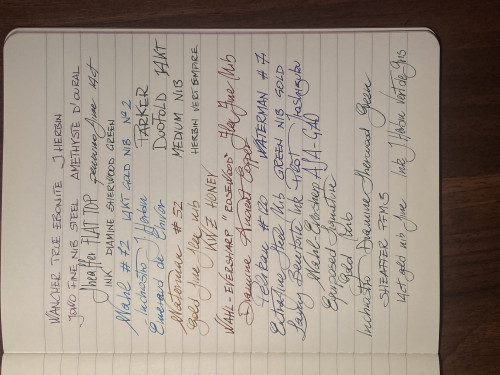 WANCHER TRUE EBONITE J HERBIN
JOWO FINE NIB STEEL AMETHYSTE D'OURAL
Sheaffer FLAT TOP fine 14kt
INK DIAMINE SHERWOOD GREEN
Wahl #72 14KT GOLD NIB No 2
Inchiostro J Herbin PARKER
Emeraud de Chivor DUOFOLD 14KT
Waterman #52 MEDIUM NIB
Gold fine flex nib HERBIN VERT EMPIRE
KWZ HONEY
WAHL-EVERSHARP "ROSEWOOD" Flex Fine Nib
Diamine Ancient Copper
Pelikan #120 WATERMAN #7
Extrafine Steel Nib GREEN NIB GOLD
Lamy Benitoite Ink PILOT
Wahl ASA-GAO
Signature
Gold Nib
Inchiostro Diamine Sherwood Green
SHEAFFER PFM3
14kt gold nib fine Ink J Herbin Vert de Gris